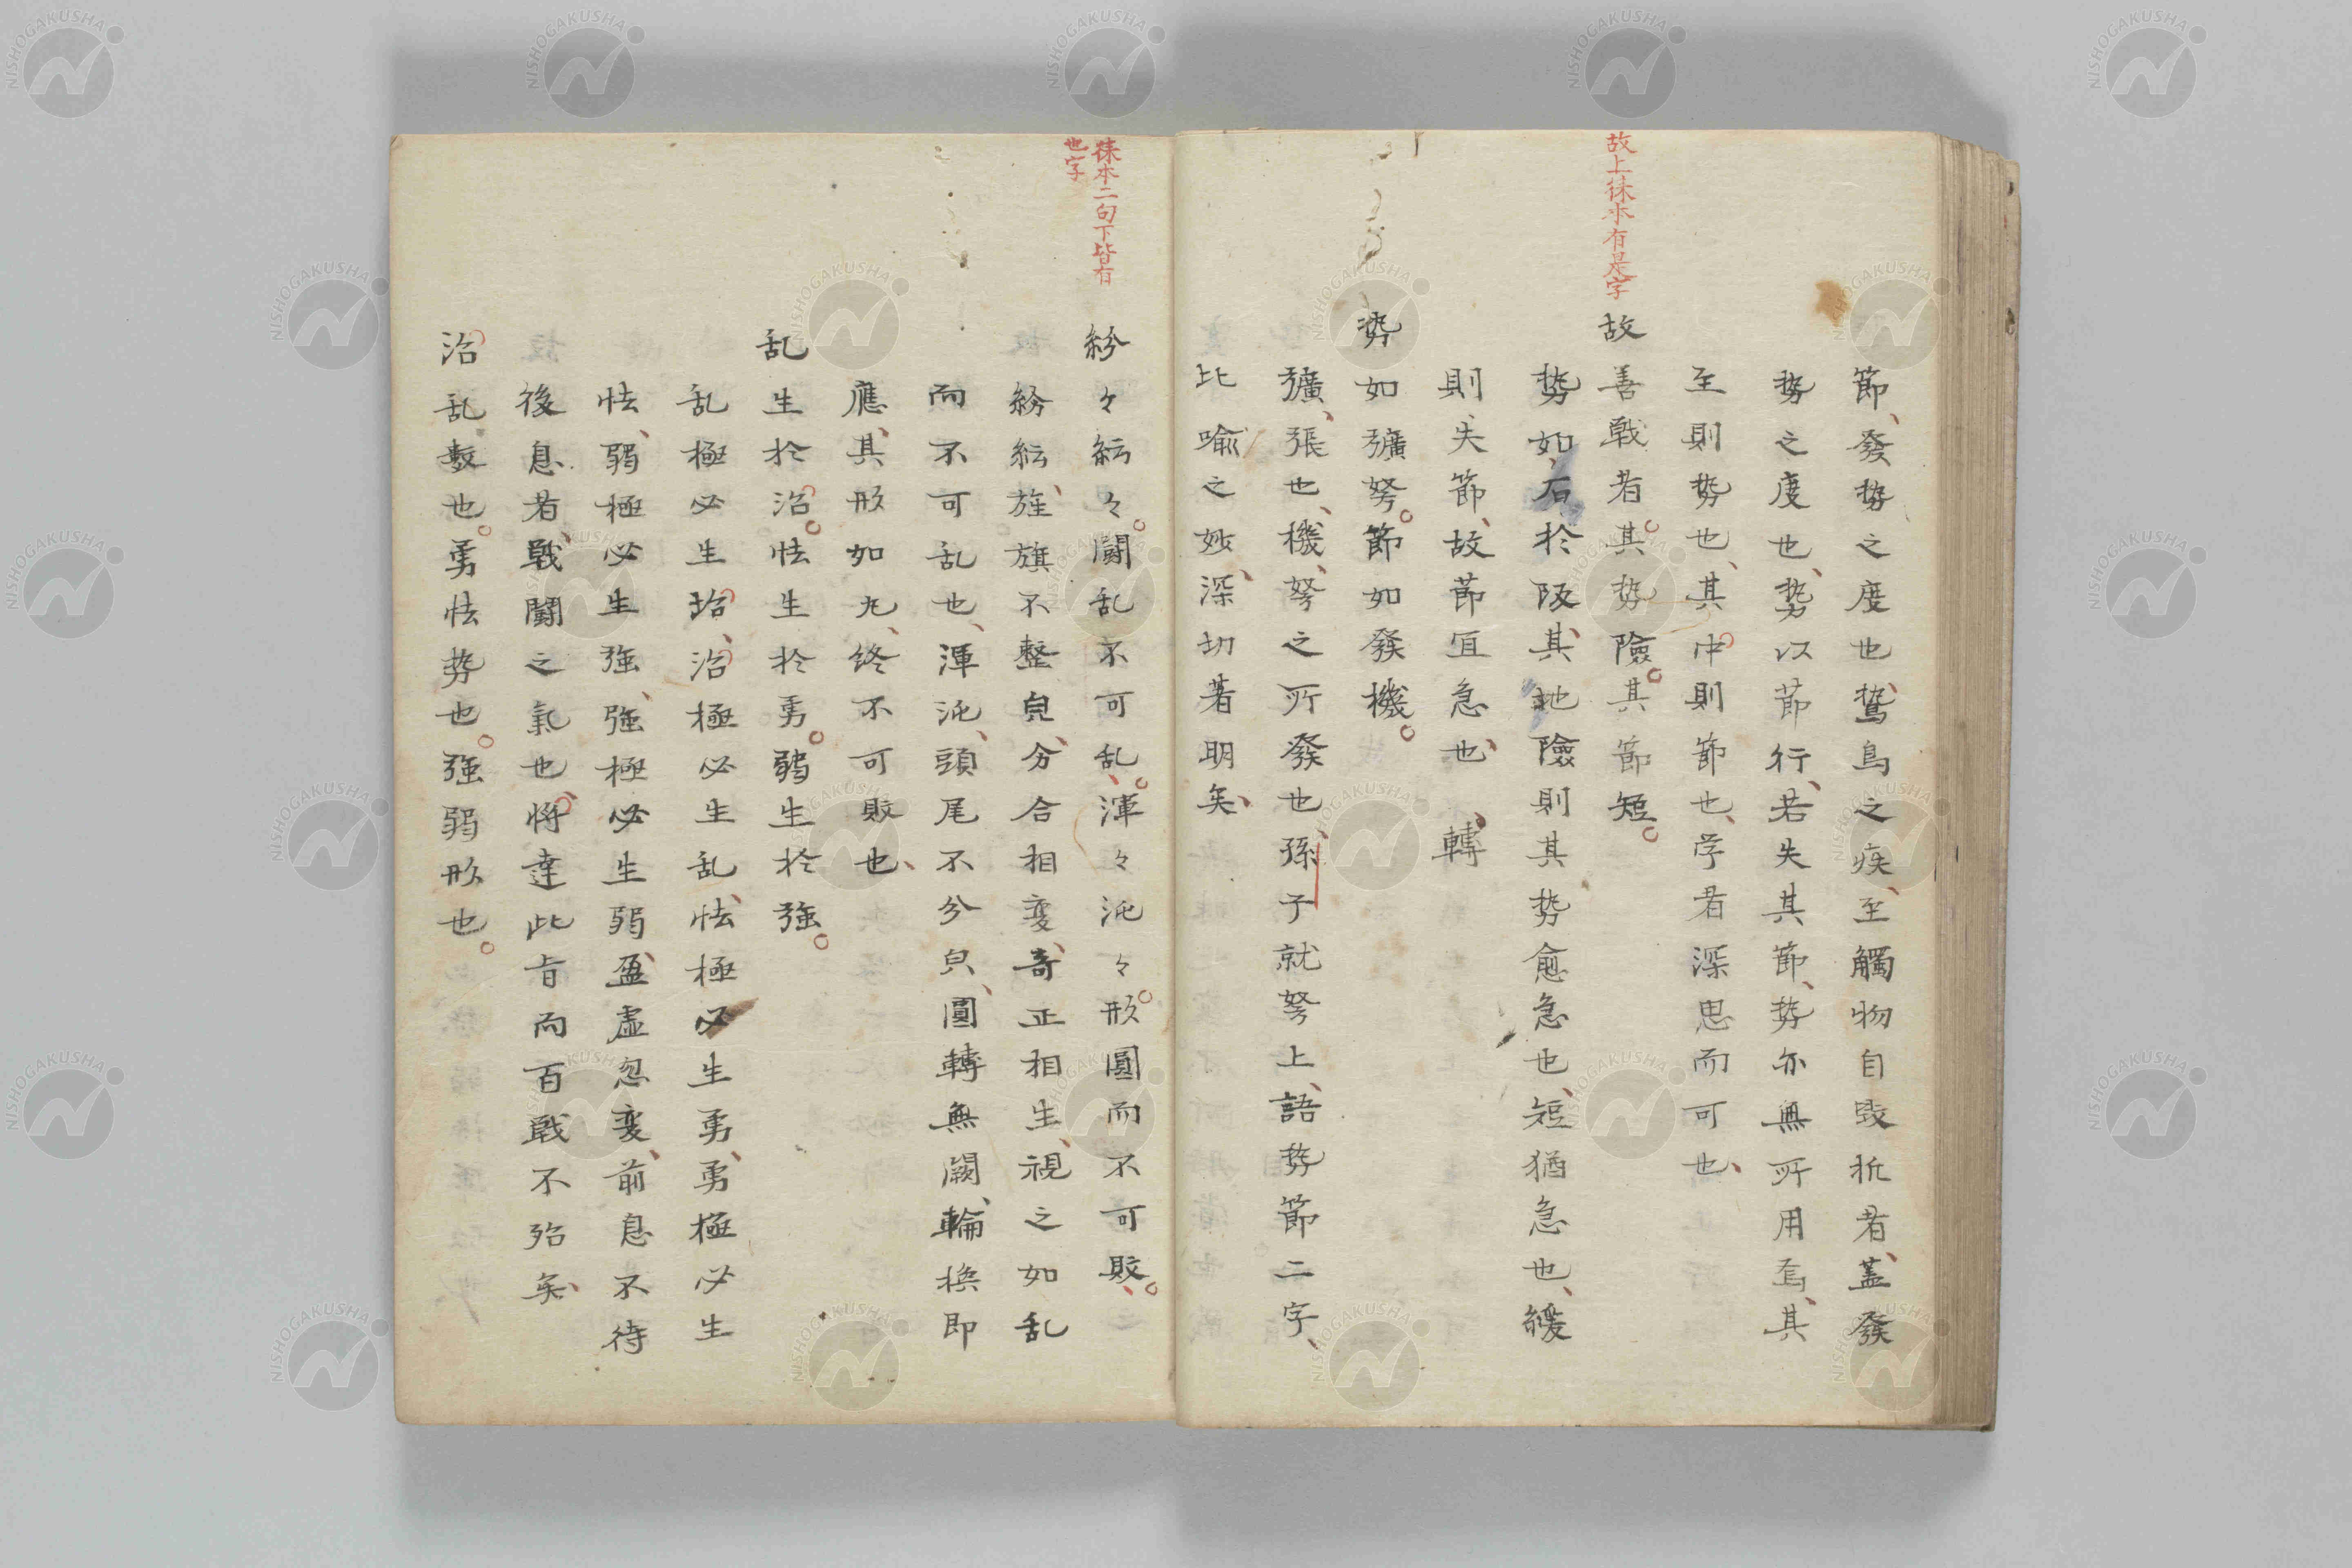 節、發勢之度也、鷙鳥之疾、至觸物自毀折者、蓋發
勢之度也、勢以節行、若失其節、勢亦無所用焉、其
至則勢也、其中則節也、学者深思而可也、
故上徠本有是字
故善戰者。其勢險。其節短。
勢如石於阪、其地險則其勢愈急也、短猶急也、緩
則失節、故節宜急也、轉
勢如彍弩。節如發機。
彍、張也、機、弩之所發也、孫子就弩上、語勢節二字、
比喻之妙、深切著明矣、
徠本二句下皆有
也字
紛々紜々。闘乱不可乱。渾々沌々。形圓而不可敗。
紛紜、旌旗不整皃、分合相変、奇正相生、視之如乱
而不可乱也、渾沌、頭尾不分皃、圓轉無闕、輪換即
應、其形如丸、終不可敗也、
乱生於治。怯生於勇。弱生於強。
乱極必生治、治極必生乱、怯極必生勇、勇極必生
怯、弱極必生強、強極必生弱、盈虚忽変、前息不待
後息者、戰闘之氣也、將達此旨而百戰不殆矣、
治乱数也。勇怯勢也。強弱形也。